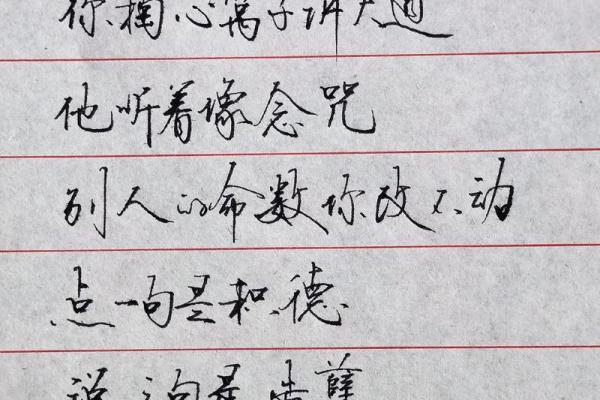 你掏心窝子讲大道
他听着像念咒
别人的命数你改不动
点一句是积德
说句是造孽